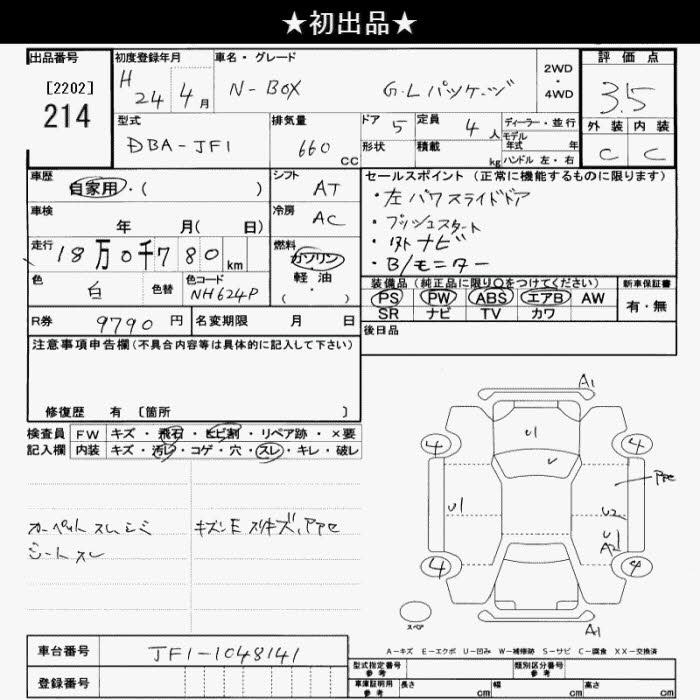 ★初出品★
出品番号
[2202]
214
初度登録年月
H 24 4月
車名・グレード
N-BOX G・Lパッケージ
2WD
・
4WD
評価点
3.5
外装 内装
C C
型式
DBA-JF1
排気量
660 CC
ドア 5
形状
定員 4人
積載 kg
ディーラー・並行
モデル年式 年
ハンドル 左・右
車歴
自家用・( )
シフト
AT
車検
年 月( 日)
冷房
AC
走行
18万0千780km
燃料
ガソリン
軽・油
・( )
色
白
色替
色コード
NH624P
R券 9790円
名変期限 月 日
セールスポイント(正常に機能するものに限ります)
・左パワスライドドア
・プッシュスタート
・外ナビ
・B/モニター
装備品(純正品に限り○をつけてください)
PS PW ABS エアB AW
SR ナビ TV カワ
新車保証書
有・無
後日品
注意事項申告欄(不具合内容等は具体的に記入して下さい)
修復歴 有 [箇所 ]
検査員
記入欄
FW キズ・飛石・ヒビ割・リペア跡・×要
内装 キズ・汚レ・コゲ・穴・スレ・キレ・破レ
カーペット スレ シミ
シート スレ
A1
U1
4 4
U1
U2
U
A2
4 4
スペア
A1
A-キズ E-エクボ U-凹み W-補修跡 S-サビ C-腐食 XX-交換済
車台番号 JF1-1048141
登録番号
型式指定番号
参考
類別区分番号
参考
車庫証明用
参考
長さ cm 幅 cm 高さ cm